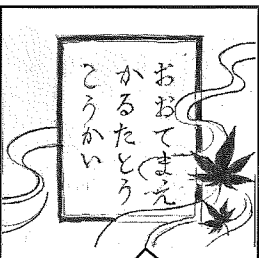 おおてまえ
かるたとう
こうかい